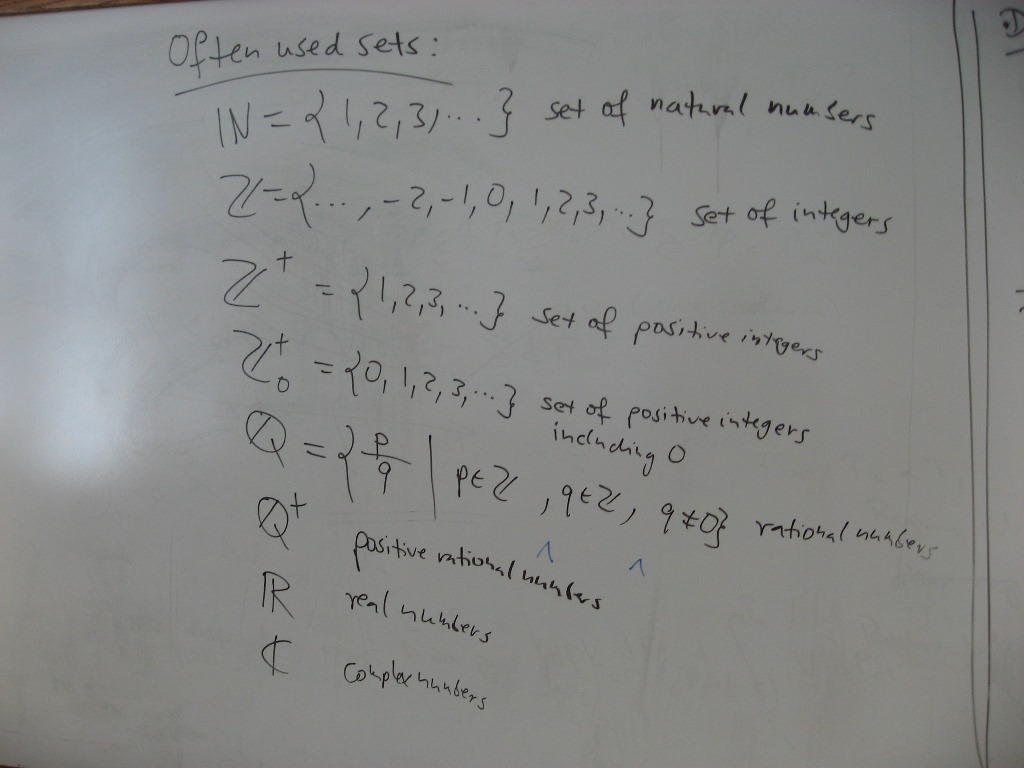 Often used sets:
ℕ = {1,2,3,...} set of natural numbers
ℤ = {..., -2,-1,0,1,2,3,...} set of integers
ℤ⁺ = {1,2,3,...} set of positive integers
ℤ₀⁺ = {0,1,2,3,...} set of positive integers
including 0
ℚ = {p/q | p∈ℤ, q∈ℤ, q≠0} rational numbers
∧ ∧
ℚ⁺ positive rational numbers
ℝ real numbers
ℂ complex numbers